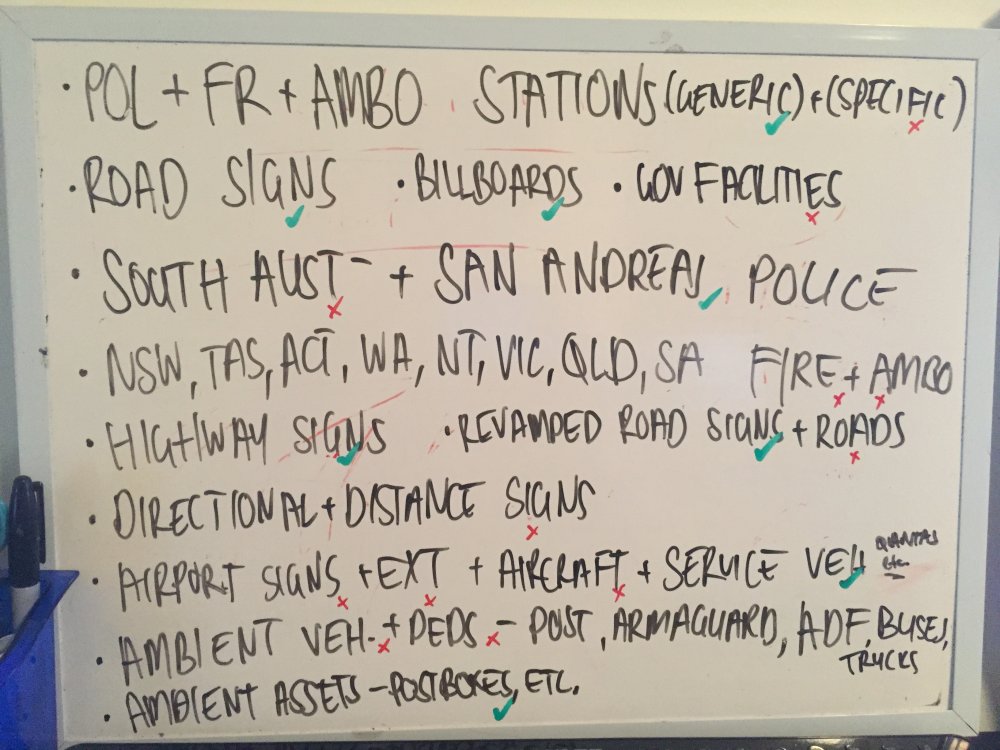 • POL + FR + AMBO STATIONS (GENERIC) + (SPECIFIC)
• ROAD SIGNS • BILLBOARDS • GOV FACILITIES
• SOUTH AUST - + SAN ANDREAS POLICE
• NSW, TAS, ACT, WA, NT, VIC, QLD, SA FIRE + AMBO
• HIGHWAY SIGNS • REVAMPED ROAD SIGNS + ROADS
• DIRECTIONAL + DISTANCE SIGNS
• AIRPORT SIGNS + EXT + AIRCRAFT + SERVICE VEH QANTAS etc.
• AMBIENT VEH. + PEDS - POST, ARMAGUARD, ADF, BUSES, TRUCKS
• AMBIENT ASSETS - POSTBOXES, ETC.